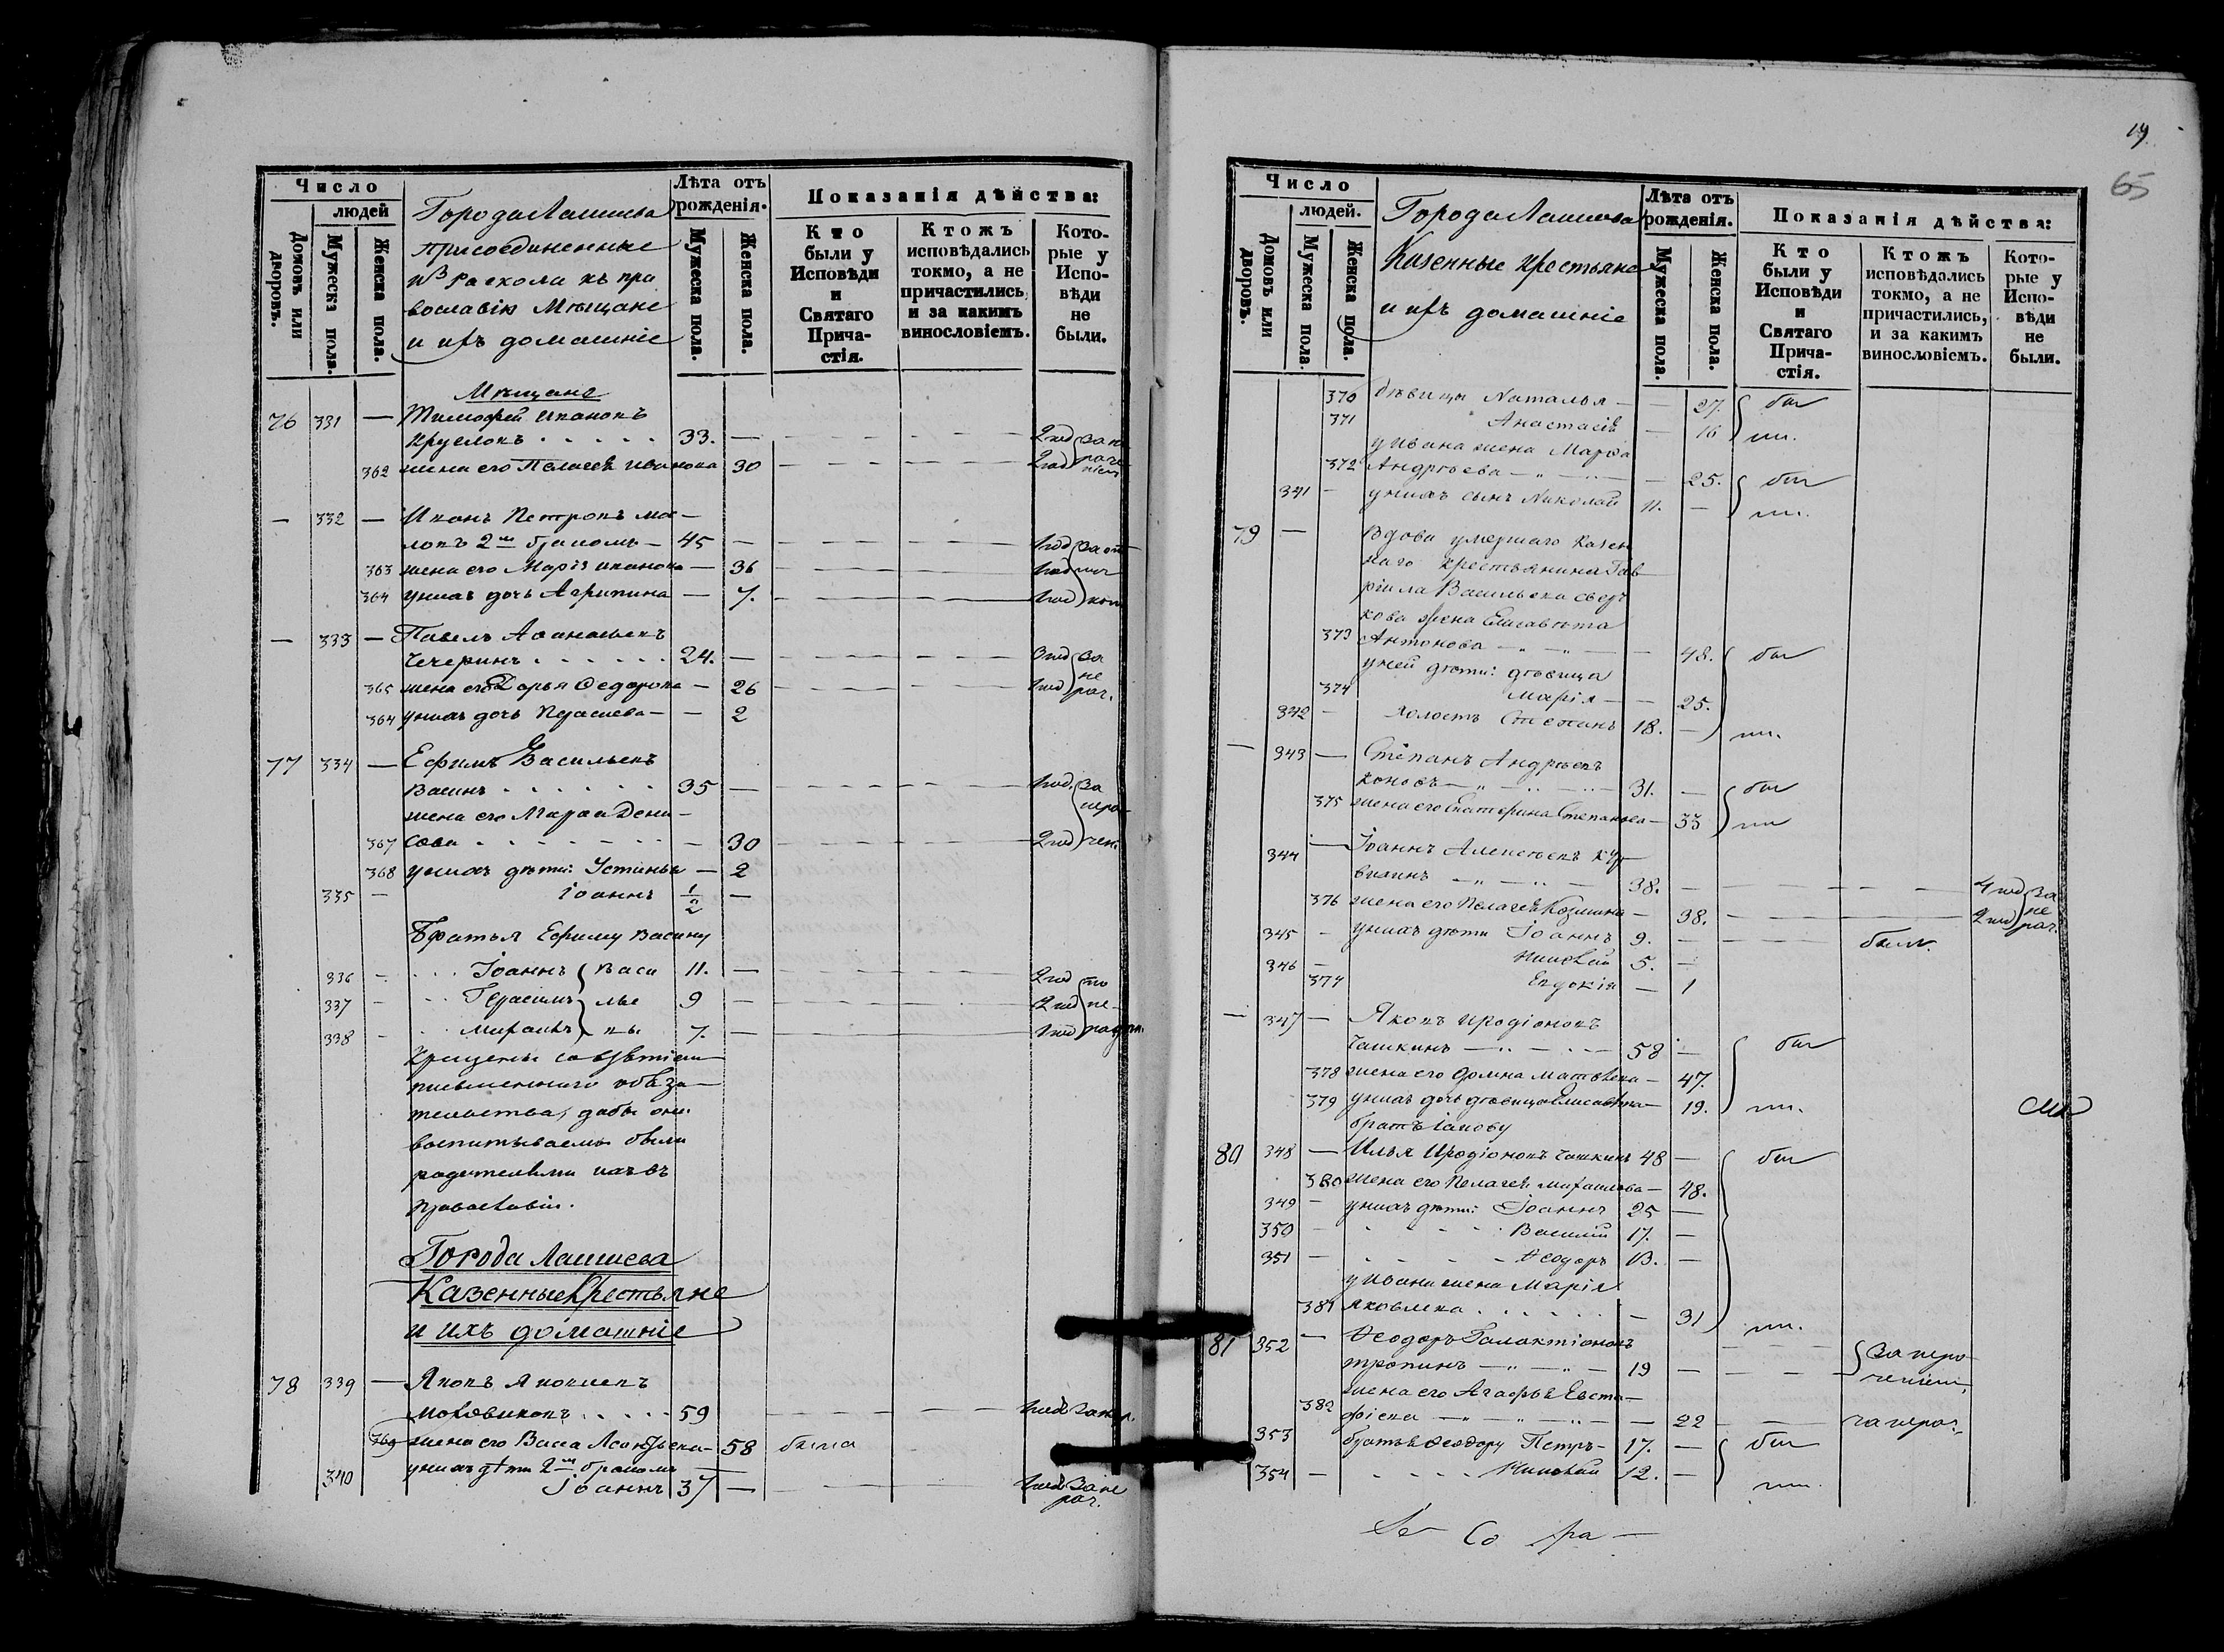 Число
людей
Домовъ или дворовъ.
Мужеска пола.
Женска пола.
Города Лаишева
присоединенные
изъ раскола къ пра
вославію Мѣщане
и ихъ домашніе
Лѣта отъ рожденія.
Мужеска пола.
Женска пола.
Показанія дѣйства:
Кто были у Исповѣди и Святаго Прича-стія.
Ктожъ исповѣдались токмо, а не причастились, и за какимъ винословіемъ.
Кото-рые у Испо-вѣди не были.
Мѣщане
76 331 — Тимофей Ивановъ
Круглокъ 33. — 2 год за не
362 жена его Пелагея Иванова 30 2 год раче ніем
— 332 — Иванъ Петровъ Ма-
ловъ 2мъ бракомъ — 45 — 1 год
363 жена его Марія Иванова — 36 1 год
364 у нихъ дочь Агрипина — 7. 1 год
— 333 — Павелъ Афанасьевъ
Чечеринъ 24. — 3 год за
365 жена его Дарья Федорова — 26 1 год не рач.
364 у нихъ дочь — 2
77 334 — Ефимъ Васильевъ
Васинъ 35 — 1 год за
жена его Марфа Дени- нера
367 сова — 30 2 год чен.
368 у нихъ дѣти: Устинья — 2
335 — Іоаннъ 1/2 —
Братья Ефиму Васину
336 — Іоаннъ Васи 11. — 2 год по
337 — Герасимъ лье 9 — 2 год не-
338 — Михаилъ вы 7. — 1 год
Крещены со взятіемъ
письменнаго обяза-
тельства, дабы они
воспитываемы были
родителями ихъ въ
православіи.
Города Лаишева
Казенные Крестьяне
и ихъ домашніе
78 339 — Яковъ Яковлевъ
Моховиковъ 59
369 жена его Васса — 58 была
у нихъ дѣти 2мъ бракомъ
340 Іоаннъ 37 — за не рач.
19.
65
Число
людей.
Домовъ или дворовъ.
Мужеска пола.
Женска пола.
Города Лаишева
Казенные крестьяне
и ихъ домашніе
Лѣта отъ рожденія.
Мужеска пола.
Женска пола.
Показанія дѣйства:
Кто были у Исповѣди и Святаго Прича-стія.
Ктожъ исповѣдались токмо, а не причастились, и за какимъ винословіемъ.
Кото-рые у Испо-вѣди не были.
370 дѣвицы Наталья — — 27. бы
371 Анастасія — 16 ли.
у Ивана жена Марфа
372 Андреева — „ — — 25. бы
341 — у нихъ сынъ Николай 11. — ли.
79 — Вдова умершаго казен
наго крестьянина Гав
ріила Васильева
жена Елисавета
373 Антонова — „ — „ — — 48. бы
у ней дѣти: дѣвица
374 Марія — — 25.
342 — холостъ Степанъ 18. — ли.
— 343 — Степанъ Андреевъ
Коновъ — „ — 31. — бы
375 жена его Екатерина Степанова — 33 ли
344 — Іоаннъ Алексѣевъ
38. — 4 год за
376 жена его Пелагея Козмина — 38. 2 год не рач.
345 — у нихъ дѣти Іоаннъ 9. — былъ.
346 — Николай 5. —
377 Евдокія — 1
— 347 — Яковъ Иродіоновъ
Чашкинъ 58 — бы
378 жена его Домна Матвѣева — 47.
379 у нихъ дочь дѣвица Елисавета — 19. ли.
братъ Іакову
80 348 — Илья Иродіоновъ Чашкинъ 48 — бы
380 жена его Пелагея Михаилова — 48.
349 — у нихъ дѣти: Іоаннъ 25 —
350 — Василій 17. —
351 — Ѳеодоръ 13. —
у Ивана жена Марія
381 Яковлева — 31 ли.
81 352 — Ѳеодоръ Галактіоновъ за нера
Тропинъ — „ — „ — 19 — ченіем.
жена его Агафья Евста-
382 фіева — „ — „ — — 22 за нерач.
353 братья Ѳеодору Петръ — 17. — бы
354 — Николай 12. — ли.